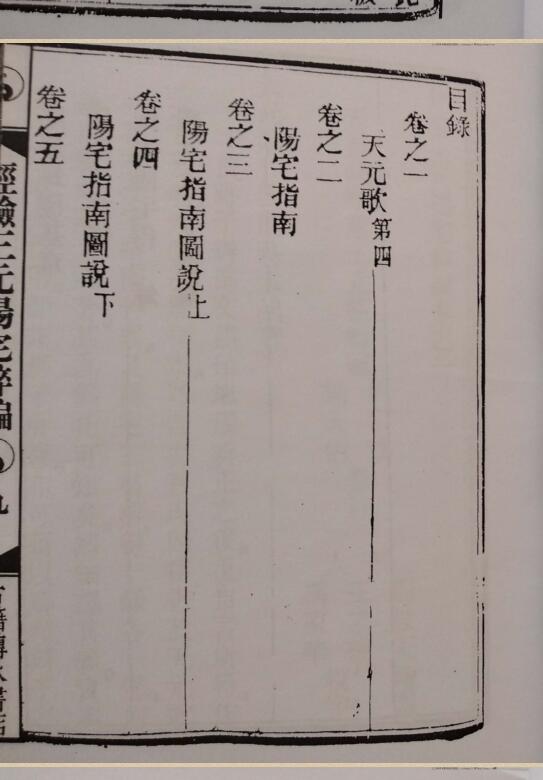 目錄
卷之一
天元歌第四
卷之二
陽宅指南
卷之三
陽宅指南圖說上
卷之四
陽宅指南圖說下
卷之五
經驗三元陽宅萃編
九